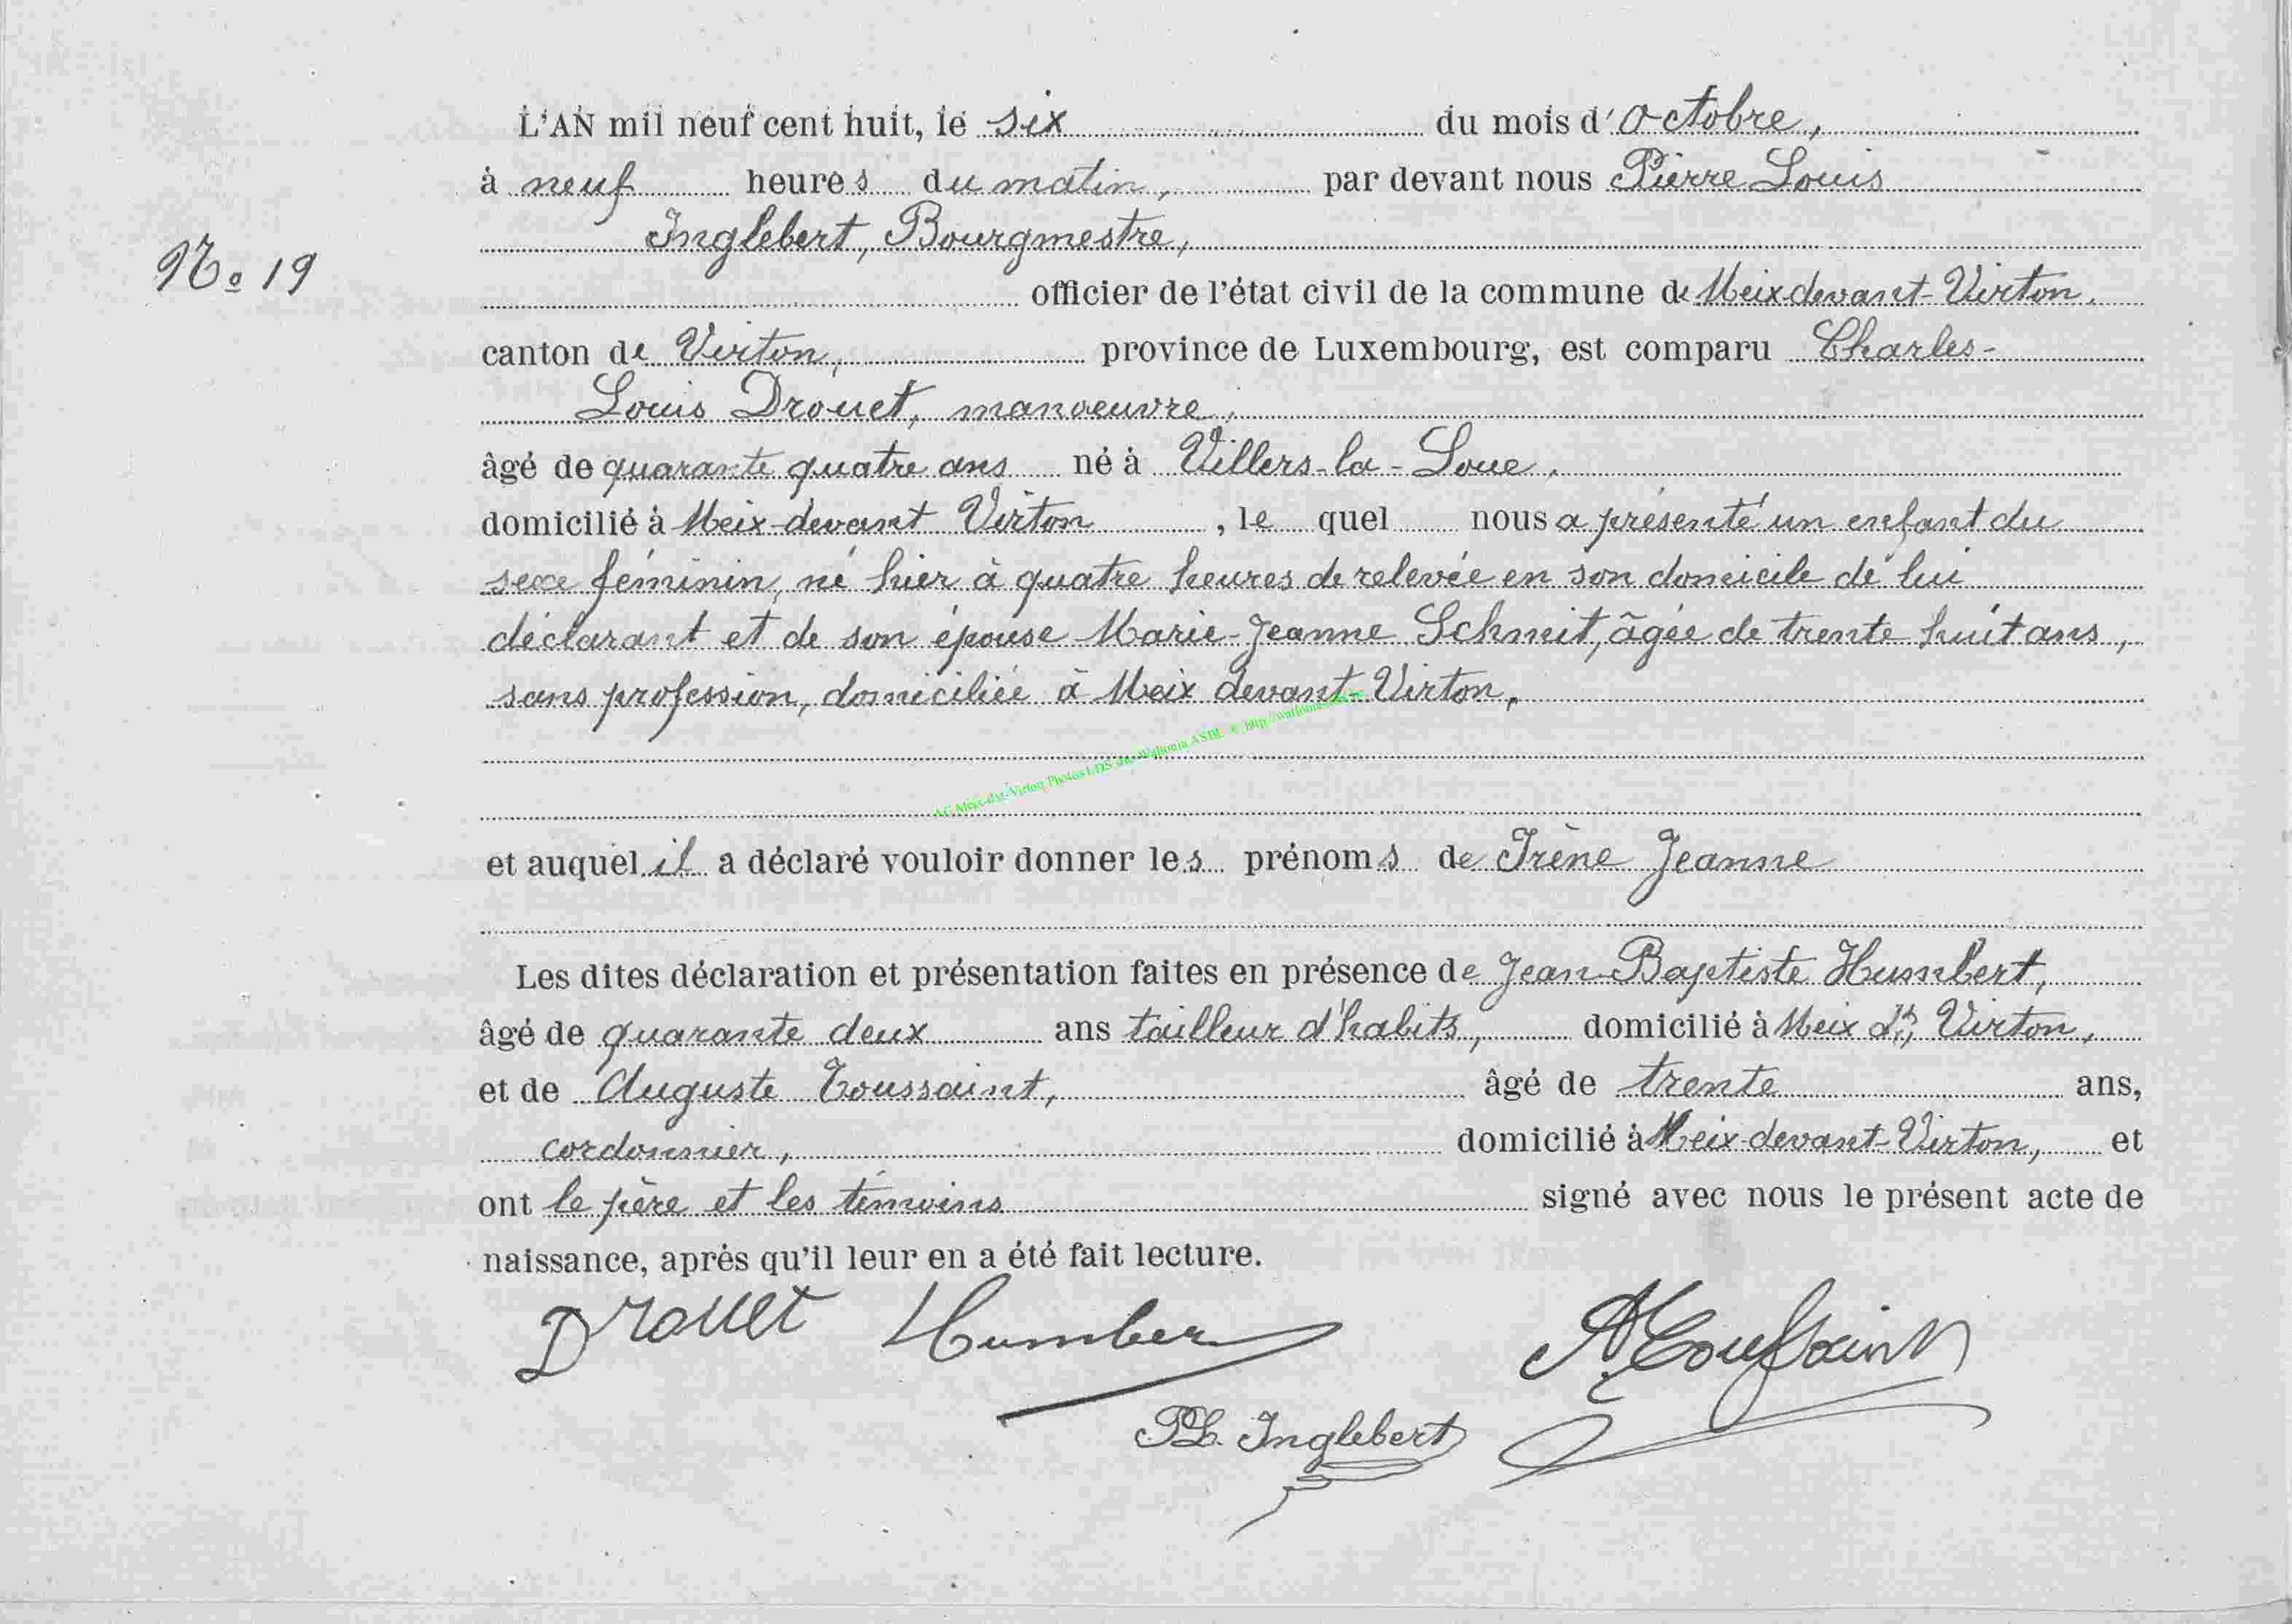 L'AN mil neuf cent huit, le six du mois d'octobre,
à neuf heures du matin, par devant nous Pierre Louis
Inglebert, Bourgmestre,
No 19
officier de l'état civil de la commune de Meix devant-Virton.
canton de Virton, province de Luxembourg, est comparu Charles-
Louis Drouet, manoeuvre,
âgé de quarante quatre ans né à Villers-la-Loue,
domicilié à Meix-devant Virton, le quel nous a présenté un enfant du
sexe féminin, né hier à quatre heures de relevée en son domicile de lui
déclarant et de son épouse Marie-Jeanne Schmit, âgée de trente huit ans,
sans profession, domiciliée à Meix devant-Virton,
AC Meix-dvt-Virton Photos LDS
et auquel il a déclaré vouloir donner les prénoms de Irène Jeanne
Les dites déclaration et présentation faites en présence de Jean-Baptiste Humbert,
âgé de quarante deux ans tailleur d'habits, domicilié à Meix dt Virton,
et de Auguste Toussaint, âgé de trente ans,
cordonnier, domicilié à Meix-devant-Virton, et
ont le père et les témoins signé avec nous le présent acte de
naissance, après qu'il leur en a été fait lecture.
Drouet Humber A Toussaint
PL. Inglebert